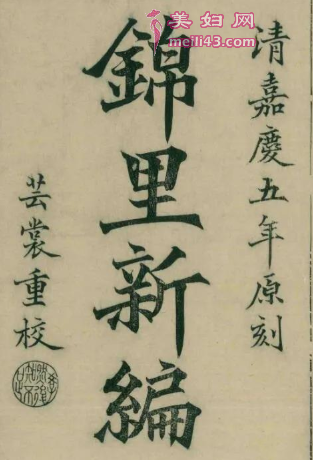 清嘉慶五年原刻
錦里新編
芸裳重校
美妇网
meili43.com